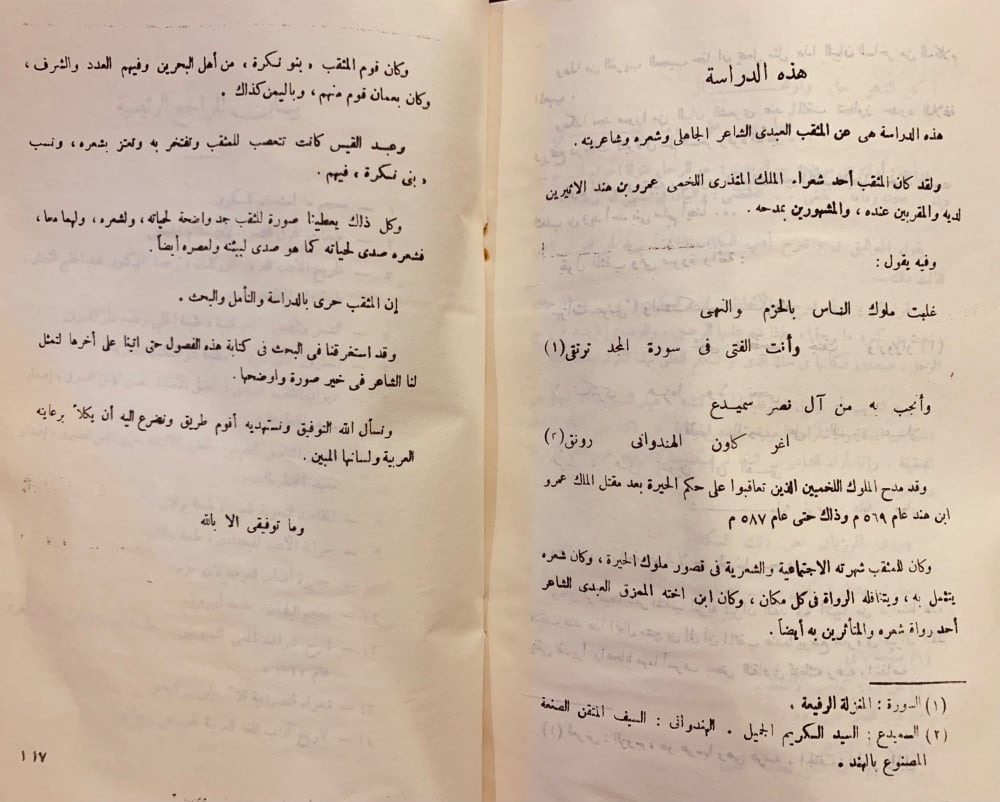 هذه الدراسة
هذه الدراسة هى عن المثقب العبدى الشاعر الجاهلى وشعره وشاعريته .
ولقد كان المثقب أحد شعراء الملك المنذرى اللخمى عمرو بن هند الاثيرين
لديه والمقربين عنده ، والمشهورين بمدحه .
وفيه يقول :
غلبت ملوك الناس بالحزم والنهى
وأنت الفتى فى سورة المجد ترتقى (١)
وأنجب به من آل نصر سميدع
اغر كلون الهندوانى رونق (٢)
وقد مدح الملوك اللخميين الذين تعاقبوا على حكم الحيرة بعد مقتل الملك عمرو
ابن هند عام ٥٦٩ م وذلك حتى عام ٥٨٧ م
وكان للمثقب شهرته الاجتماعية والشعرية فى قصور ملوك الحيرة ، وكان شعره
يتمثل به ، ويتناقله الرواة فى كل مكان ، وكان ابن اخته الممزق العبدى الشاعر
أحد رواة شعره والمتأثرين به أيضاً .
(١) السورة : المنزلة الرفيعة .
(٢) السميدع : السيد الكريم الجميل . الهندوانى : السيف المتقن الصنعة
المصنوع بالهند .
وكان قوم المثقب « بنو نكرة ، من أهل البحرين وفيهم العدد والشرف ،
وكان بعمان قوم منهم ، وباليمن كذلك .
وعبد القيس كانت تتعصب للمثقب وتفتخر به وتعتز بشعره ، ونسب
« بنى نكرة ، فيهم .
وكل ذلك يعطينا صورة للمثقب جد واضحة لحياته ، ولشعره ، ولهما معا ،
فشعره صدى لحياته كما هو صدى لبيئته ولعصره أيضاً .
إن المثقب حرى بالدراسة والتأمل والبحث .
وقد استغرقنا فى البحث فى كتابة هذه الفصول حتى اتينا على أخرها لتمثل
لنا الشاعر فى خير صورة واوضحها .
ونسأل الله التوفيق ونستهديه أقوم طريق ونضرع اليه أن يكلأ برعايته
العربية ولسانها المبين .
وما توفيقى الا بالله
١١٧